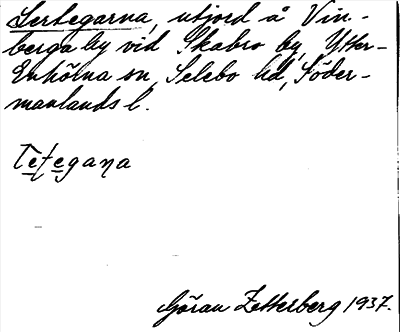 Sertegarna, utjord å Vin-
berga by vid Skabro by, Ytter-
Enhörna sn, Selebo hd, Söder-
manlands l.
Göran Zetterberg 1937.